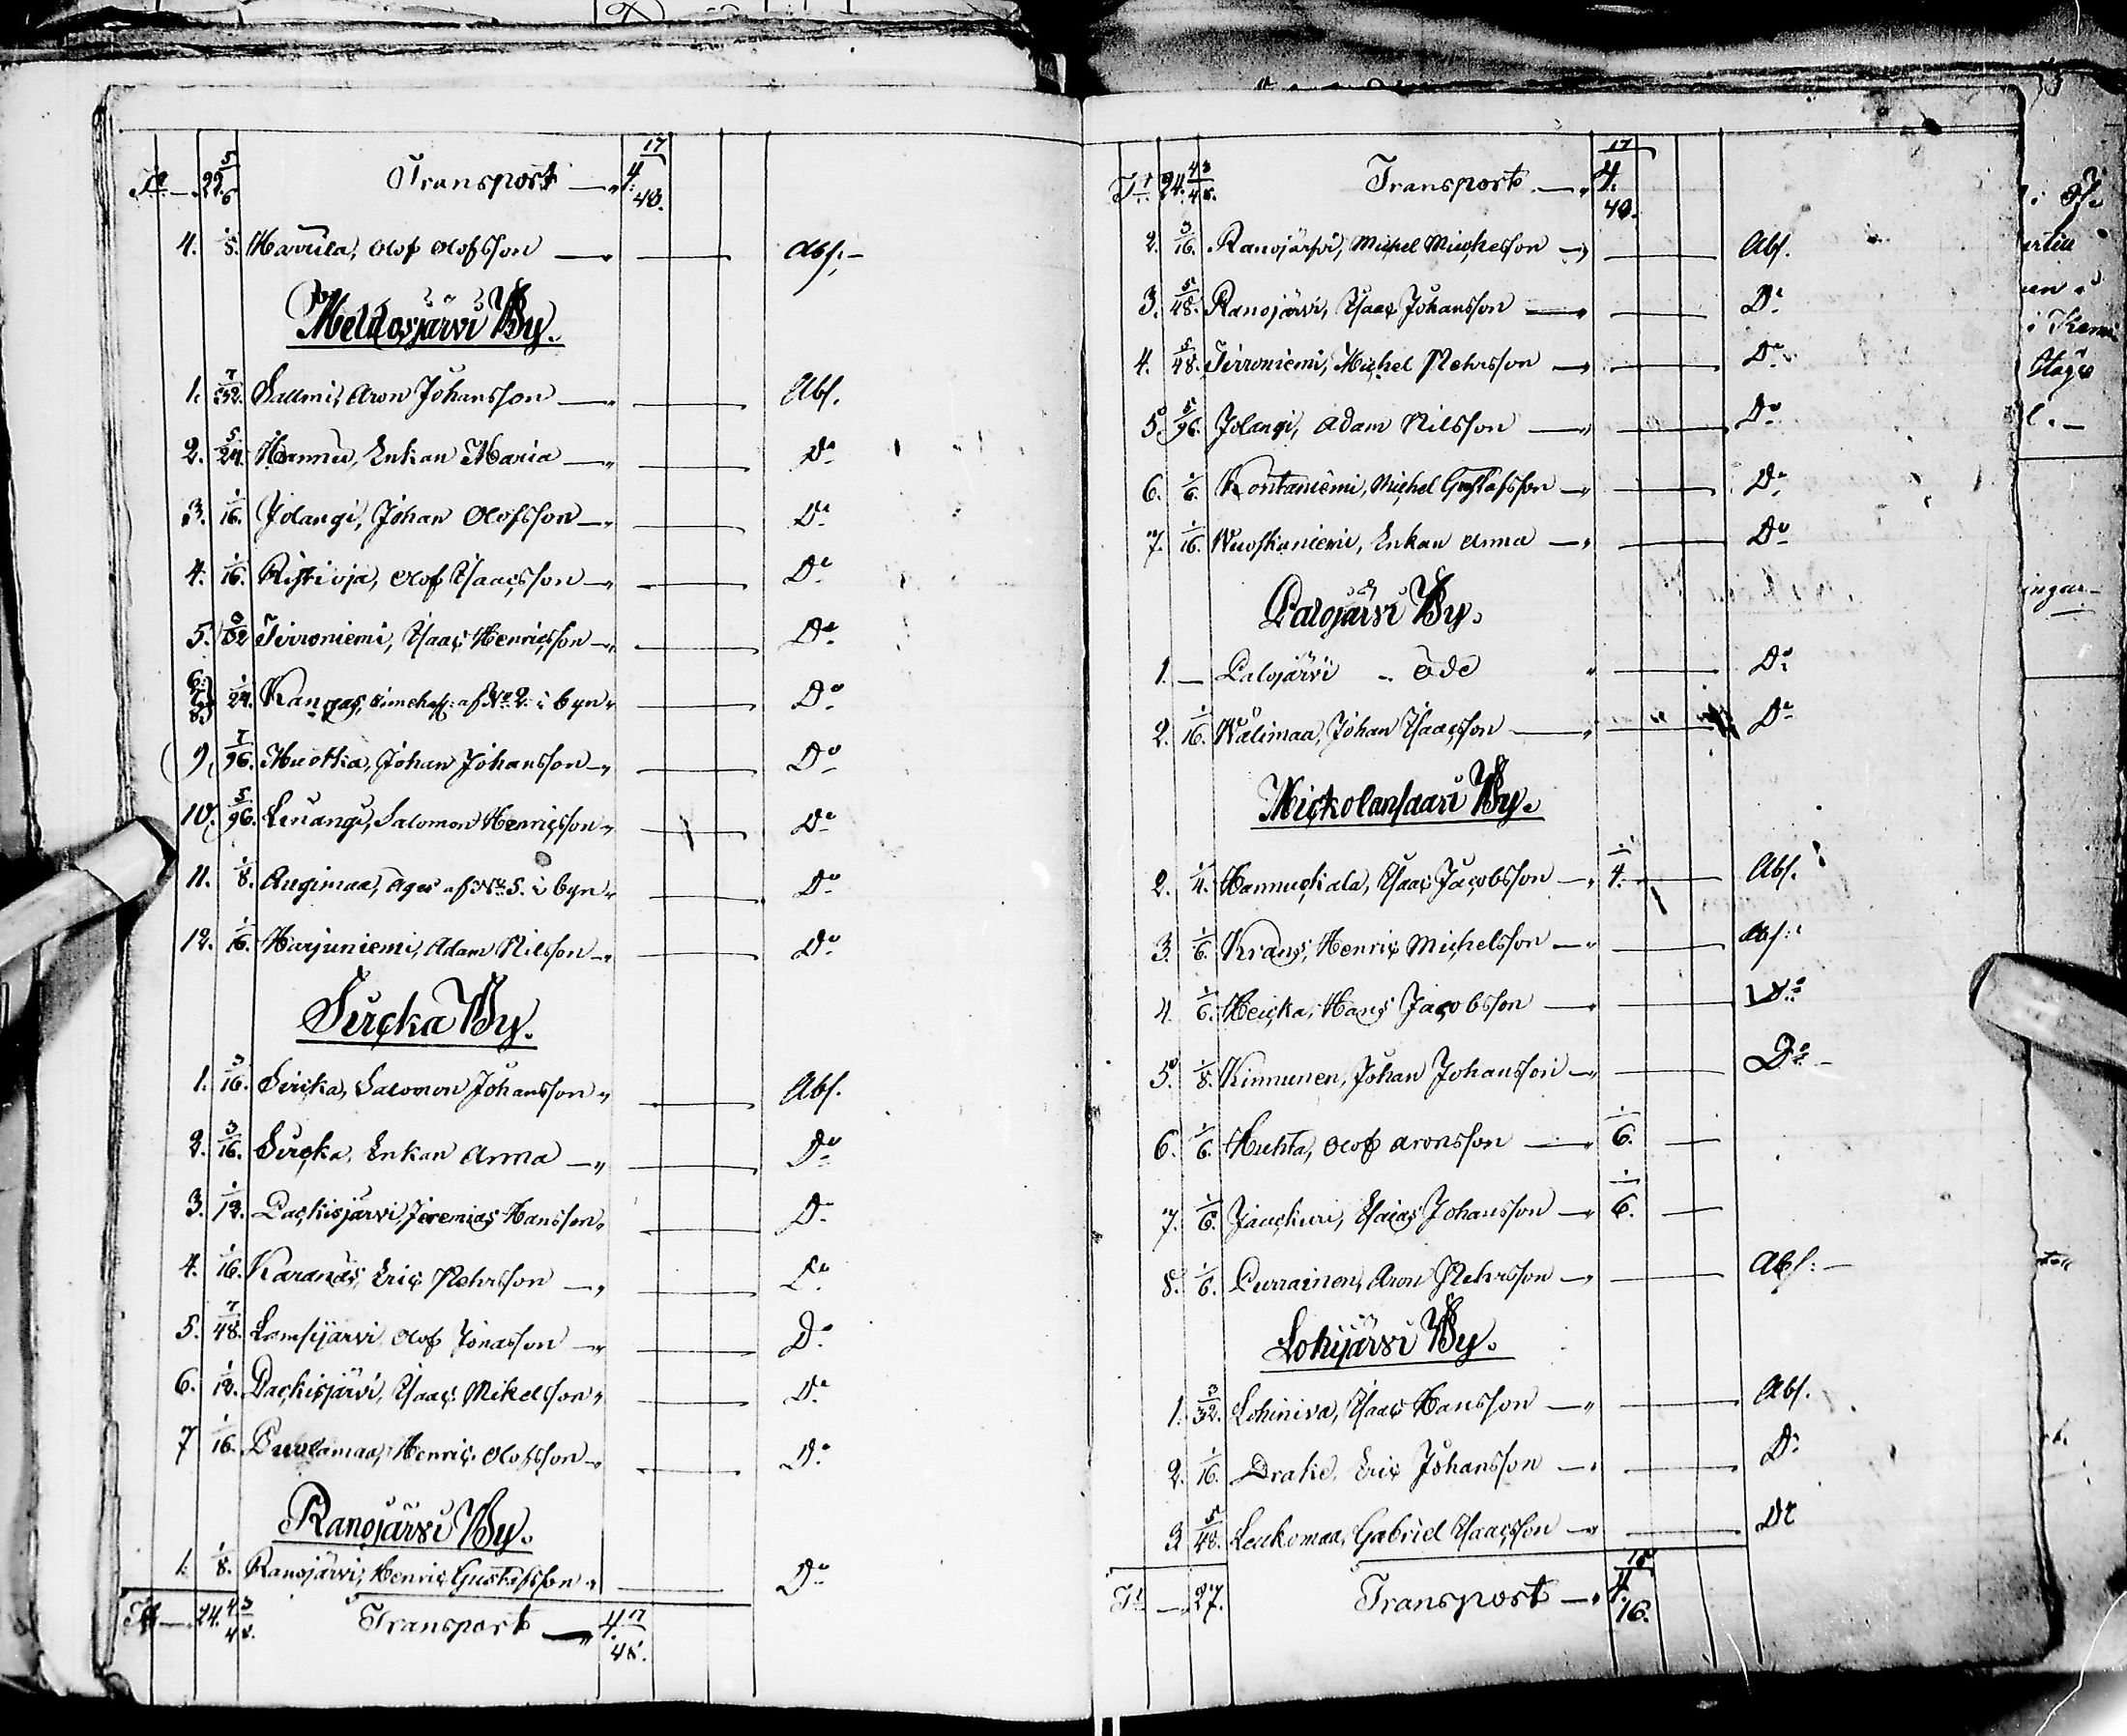 Tt — 22. 5/6 Transport — 4. 17/48.
4. 1/8. Harrila, Olof Olofsson — Abs:
Meldosjärvi By.
1. 7/32. Sallmi, Aron Johansson — Abs.
2. 5/24. Hannu, Enkan Maria — Do
3. 1/16. Jolangi, Johan Olofsson — Do
4. 1/16. Ristioja, Olof Isaacsson — Do
5. /32 Tirroniemi, Isaac Henricsson — Do
6. 7. 8. 1/24. Kangas, af No 2. i byn Do
9. 7/96. Muotka, Johan Johansson — Do
10. 5/96. Liuangi, Salomon Henricsson Do
11. 1/8. Augimaa, äges af No 5. i byn Do
12. 1/16. Harjuniemi, Adam Nilsson — Do
Sircka By.
1. 3/16. Sircka, Salomon Johansson Abs.
2. 3/16. Sircka, Enkan Anna — Do
3. 1/12. Packisjärvi, Jeremias Hansson Do
4. 1/16. Karanås, Eric Pehrsson — Do
5. 7/48. Lamsijärvi Olof Jonasson — Do
6. 1/12. Packisjärvi, Isaac Mikelsson Do
7 1/16. Puolamaa, Henric Olofsson — Do
Ranojärvi By.
1. 1/8. Ranojärvi, Henric Gustafsson Do
Tt — 24. 43/48. Transport — 4. 17/48.
Tt 24. 43/48. Transport — 4. 17/48.
2. 3/16. Ranojärvi, Michel Michelsson — Abs.
3. 5/48. Ranojärvi, Isaac Johansson — Do
4. 5/48. Tirroniemi, Michel Pehrsson — Do
5. 5/96. Jolangi, Adam Nilsson — Do
6. 1/6. Kontaniemi, Michel Gustafsson — Do
7. 1/16. Wuoskuniemi, Enkan Anna — Do
Palojärvi By.
1. — Palojärvi öde Do
2. 1/16. Wälimaa, Johan Isaacsson — Do
Mickolansaari By.
2. 1/4. Hannuckala, Isaac Jacobsson — 1/4. Abs.
3. 1/6. Krans, Henric Michelsson — Abs:
4. 1/6. Heicka, Hans Jacobsson — Do
5. 1/8. Kinnunen, Johan Johansson — Do
6. 1/6. Huhta, Olof Aronsson — 1/6. —
7. 1/6. Jauckuri, Esaias Johansson — 1/6. —
8. 1/6. Purrainen, Aron Pehrsson — Abs:
Lohijärvi By.
1. 3/32. Lohiniva, Isaac Hansson — Abs.
2. 1/16. Drake, Eric Johansson — Do
3. 5/48. Leukomaa, Gabriel Isaacsson — Do
Tt — 27. Transport — 4. 15/16.